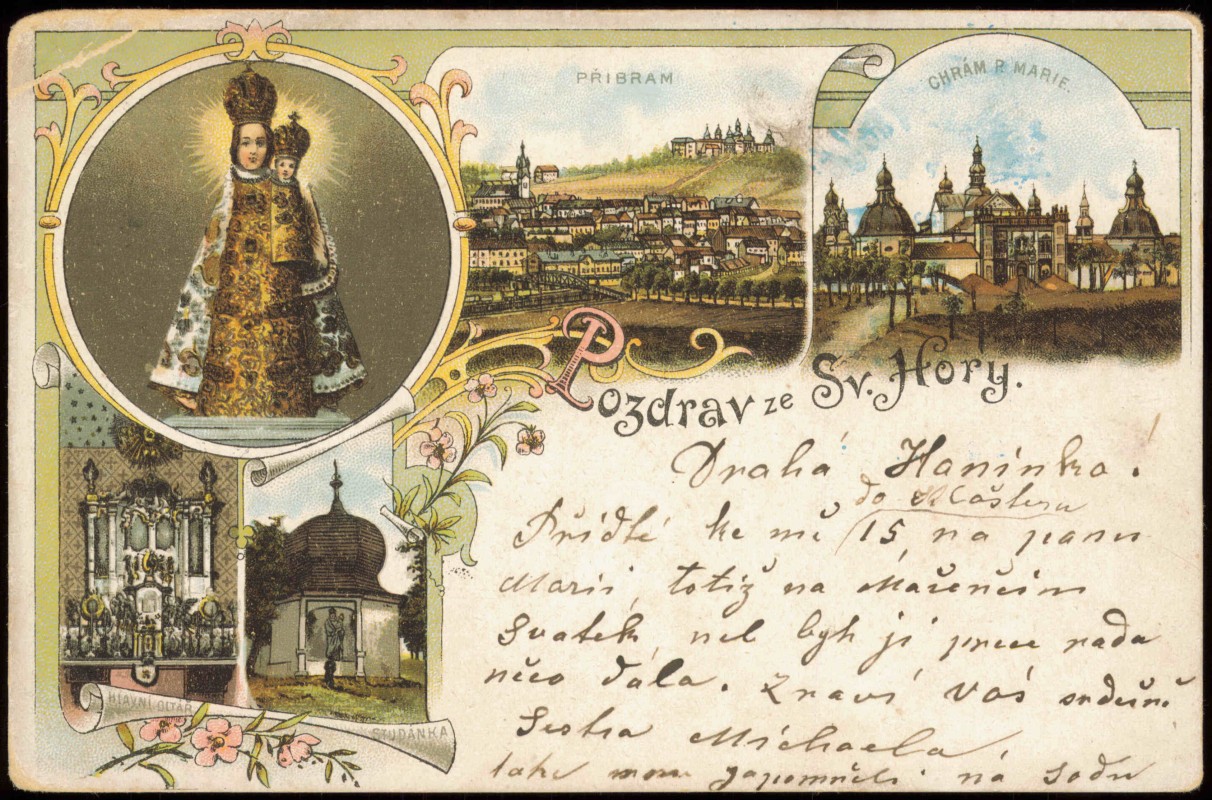 PŘIBRAM
CHRÁM P. MARIE.
Pozdrav ze Sv. Hory.
HLAVNÍ OLTÁŘ
STUDÁNKA
Drahá Hanínko.
do Kláštera
Přiďtě ke mě 15, na panu
Marii, totiž na Mařenčin
Svatek, byh jí prece rada
něco dala. Zraví Vás srdečně
Sestra Michaela,
take zapomněli na Sodu